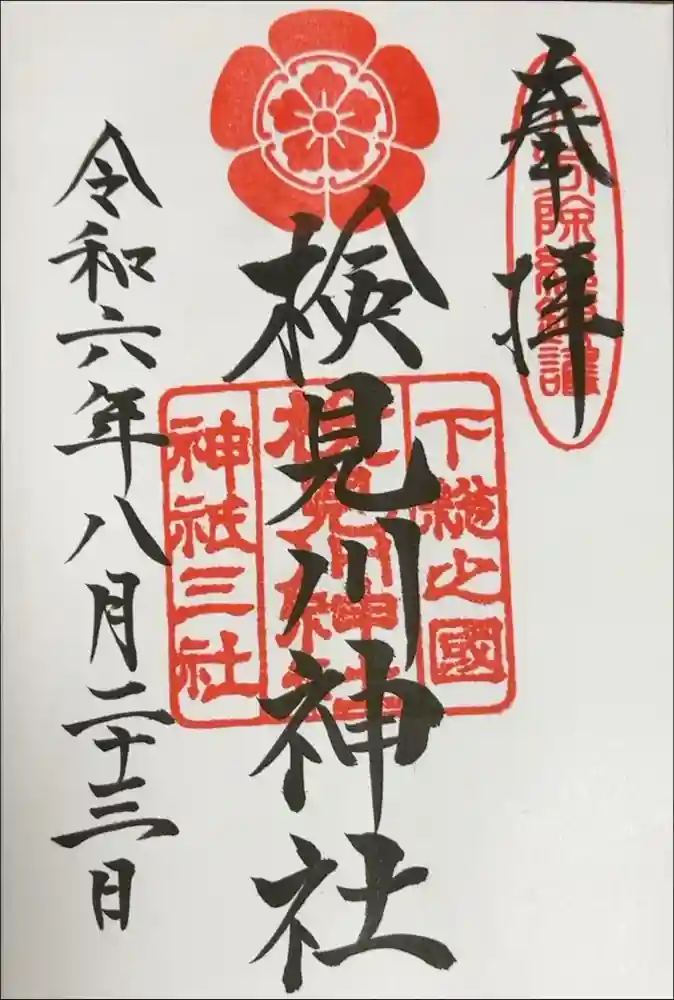 奉拝
検見川神社
下総之國
検見川神社
神祇三社
令和六年八月二十三日